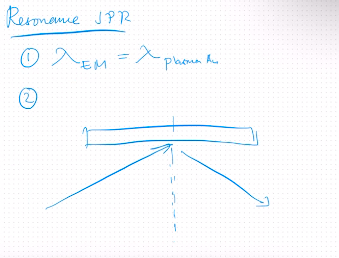 Resonance SPR
① λ EM = λ plasma
②